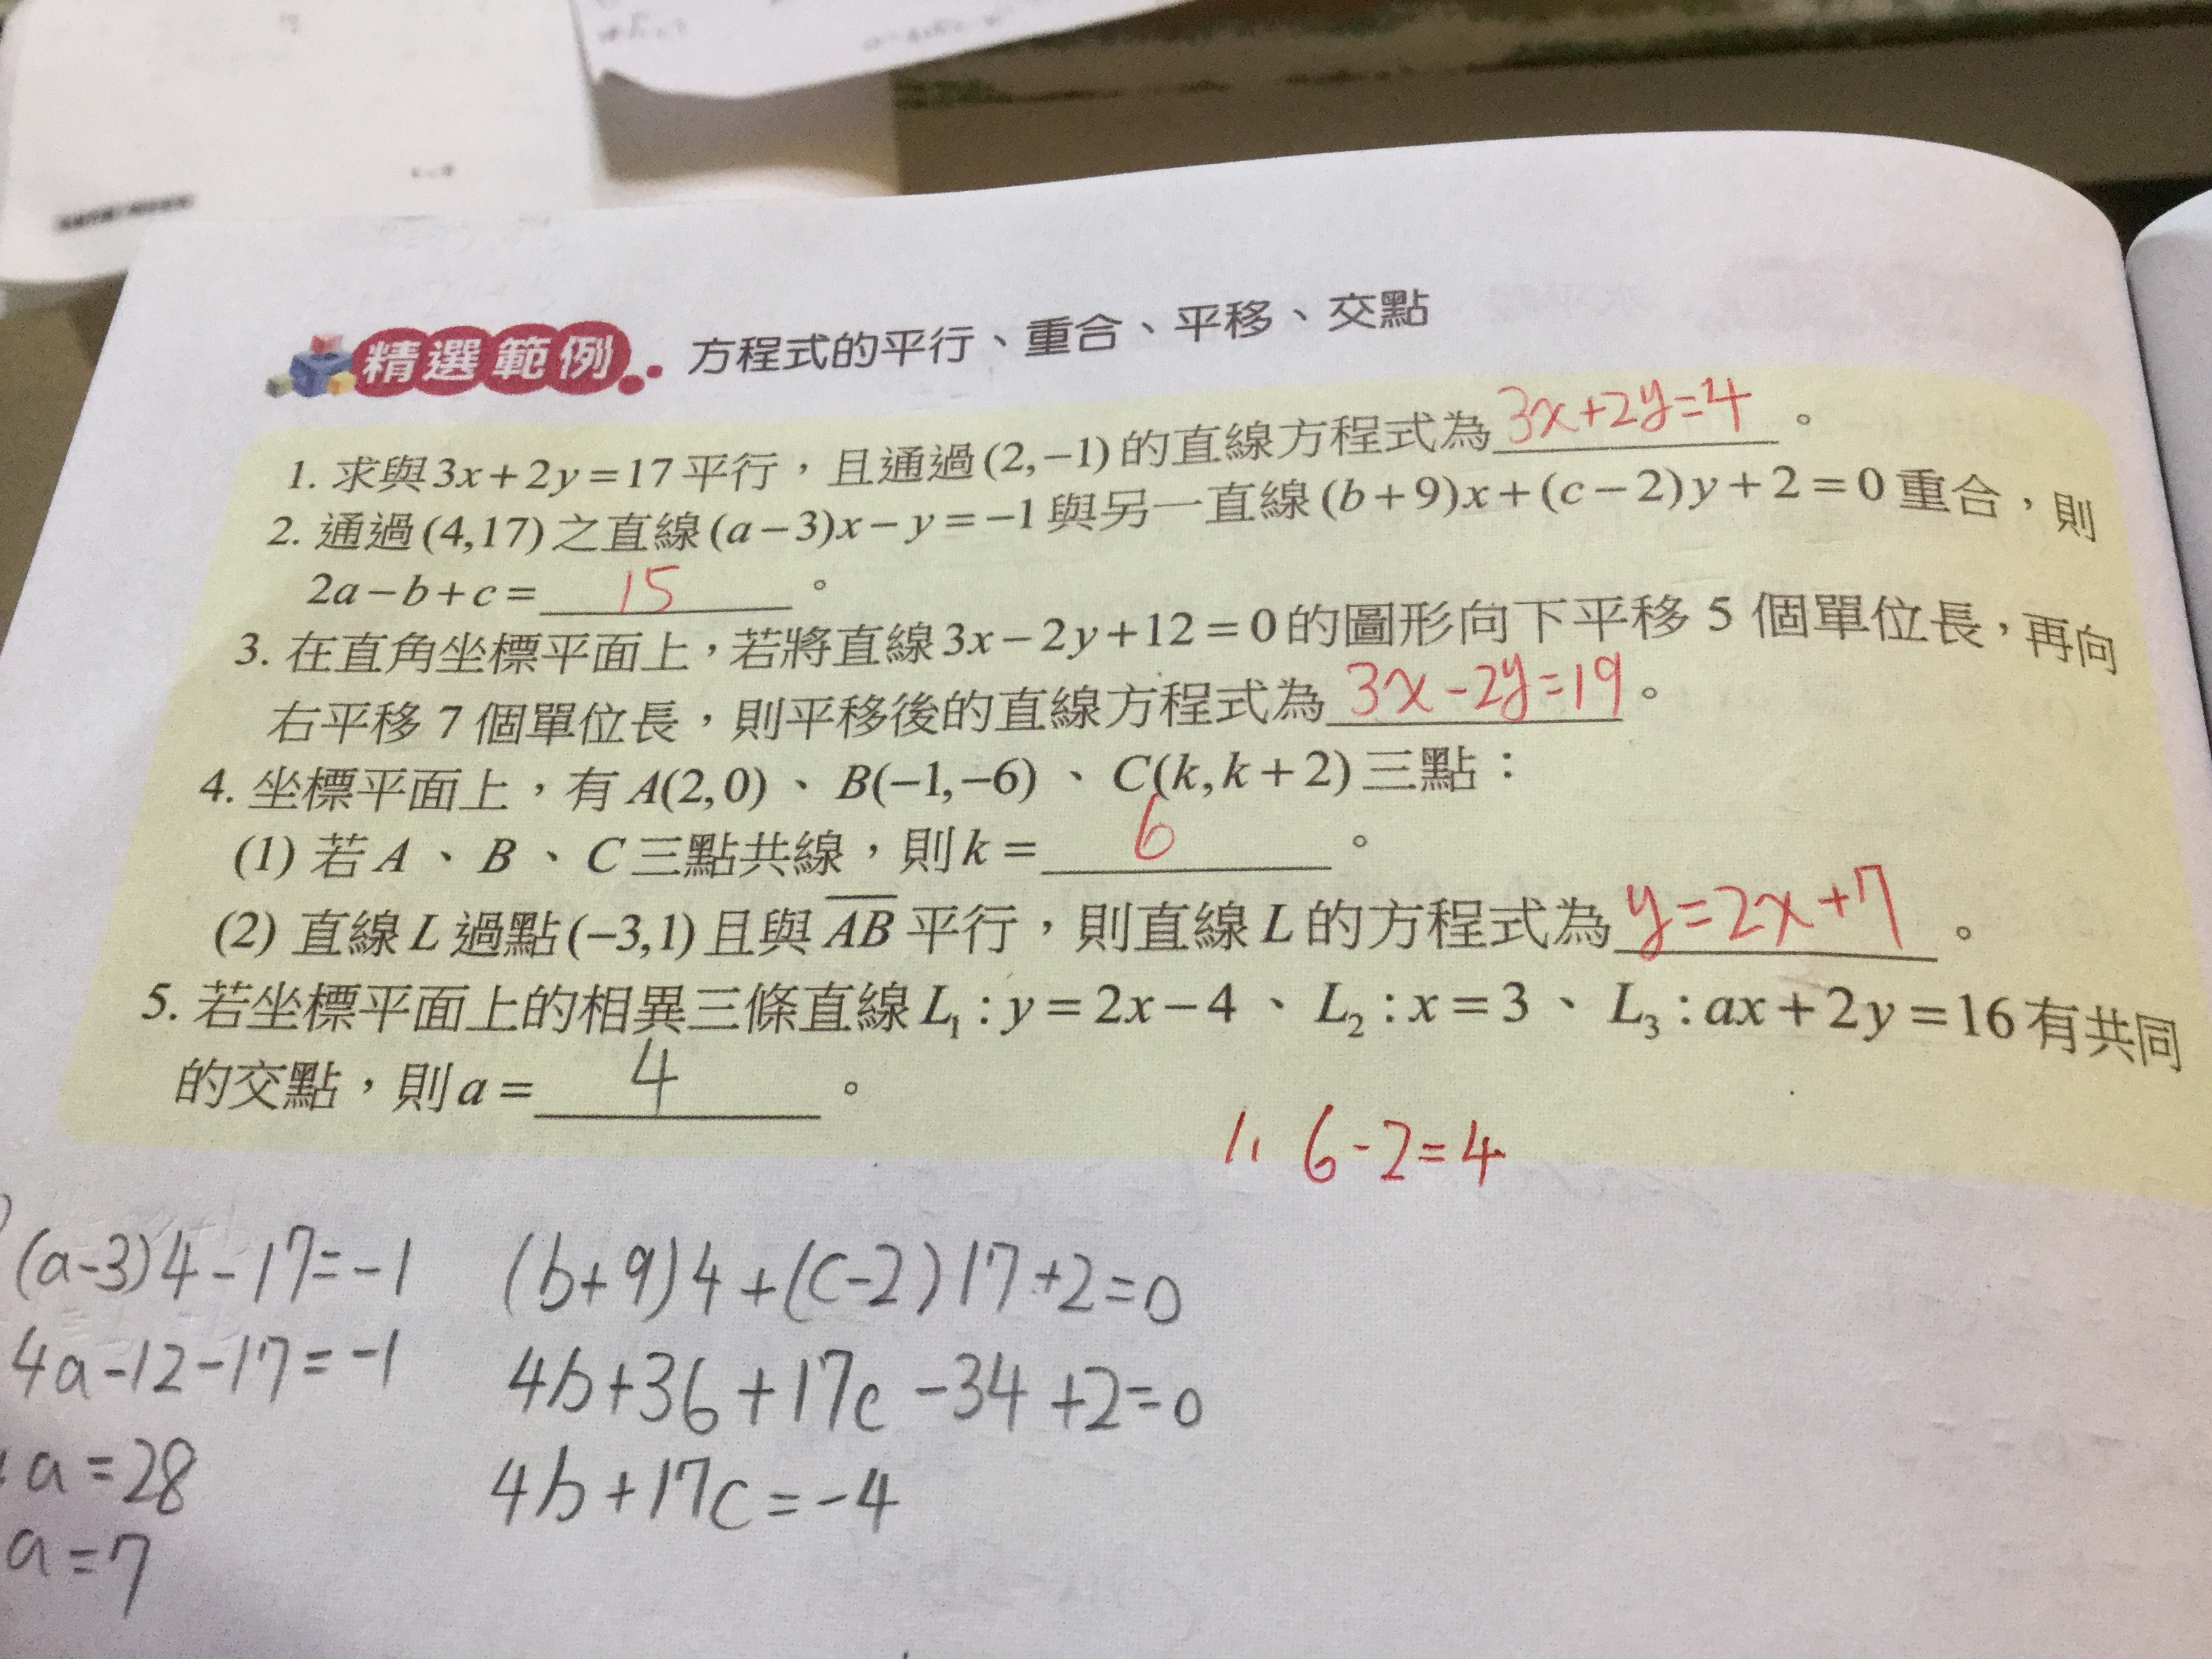 精選範例 方程式的平行、重合、平移、交點
1. 求與3x+2y=17平行，且通過(2,−1)的直線方程式為 3x+2y=4 。
2. 通過(4,17)之直線(a−3)x−y=−1與另一直線(b+9)x+(c−2)y+2=0重合，則
2a−b+c= 15 。
3. 在直角坐標平面上，若將直線3x−2y+12=0的圖形向下平移 5 個單位長，再向
右平移 7 個單位長，則平移後的直線方程式為 3x-2y=19 。
4. 坐標平面上，有 A(2,0)、B(−1,−6)、C(k,k+2)三點：
(1) 若 A、B、C三點共線，則k= 6 。
(2) 直線 L 過點(−3,1)且與 A̅B̅ 平行，則直線L的方程式為 y=2x+7 。
5. 若坐標平面上的相異三條直線L₁:y=2x−4、L₂:x=3、L₃:ax+2y=16有共同
的交點，則a= 4 。
1. 6-2=4
(a-3)4-17=-1 (b+9)4+(c-2)17+2=0
4a-12-17=-1 4b+36+17c-34+2=0
a=28 4b+17c=-4
a=7